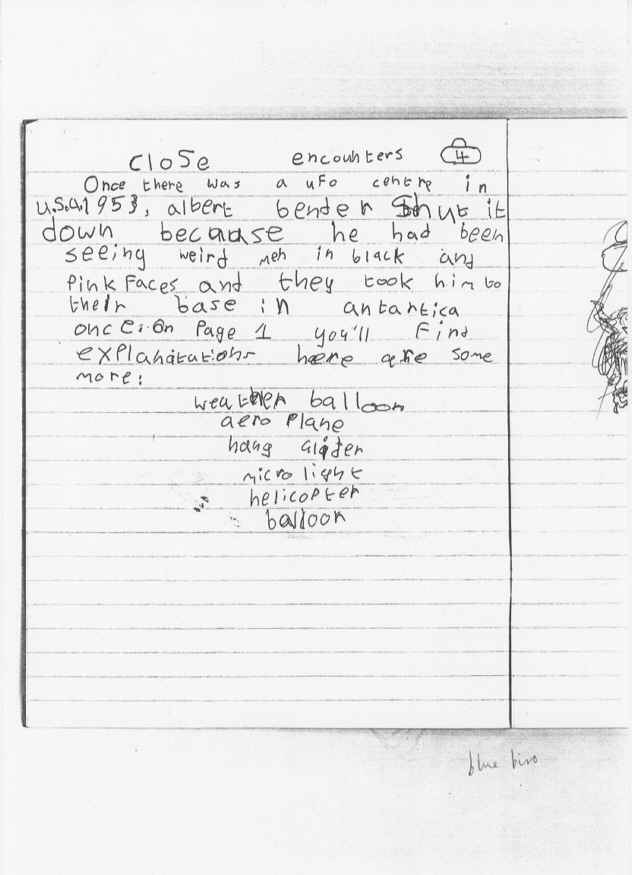 Close encounters 4
Once there was a ufo centre in
U.S.A.1953, albert bender Shut it
down because he had been
seeing weird men in black and
pink faces and they took him to
their base in antartica
once. on Page 1 you'll find
explanatations here are some
more:
weather balloon
aero plane
hang glider
microlight
helicopter
balloon
blue biro